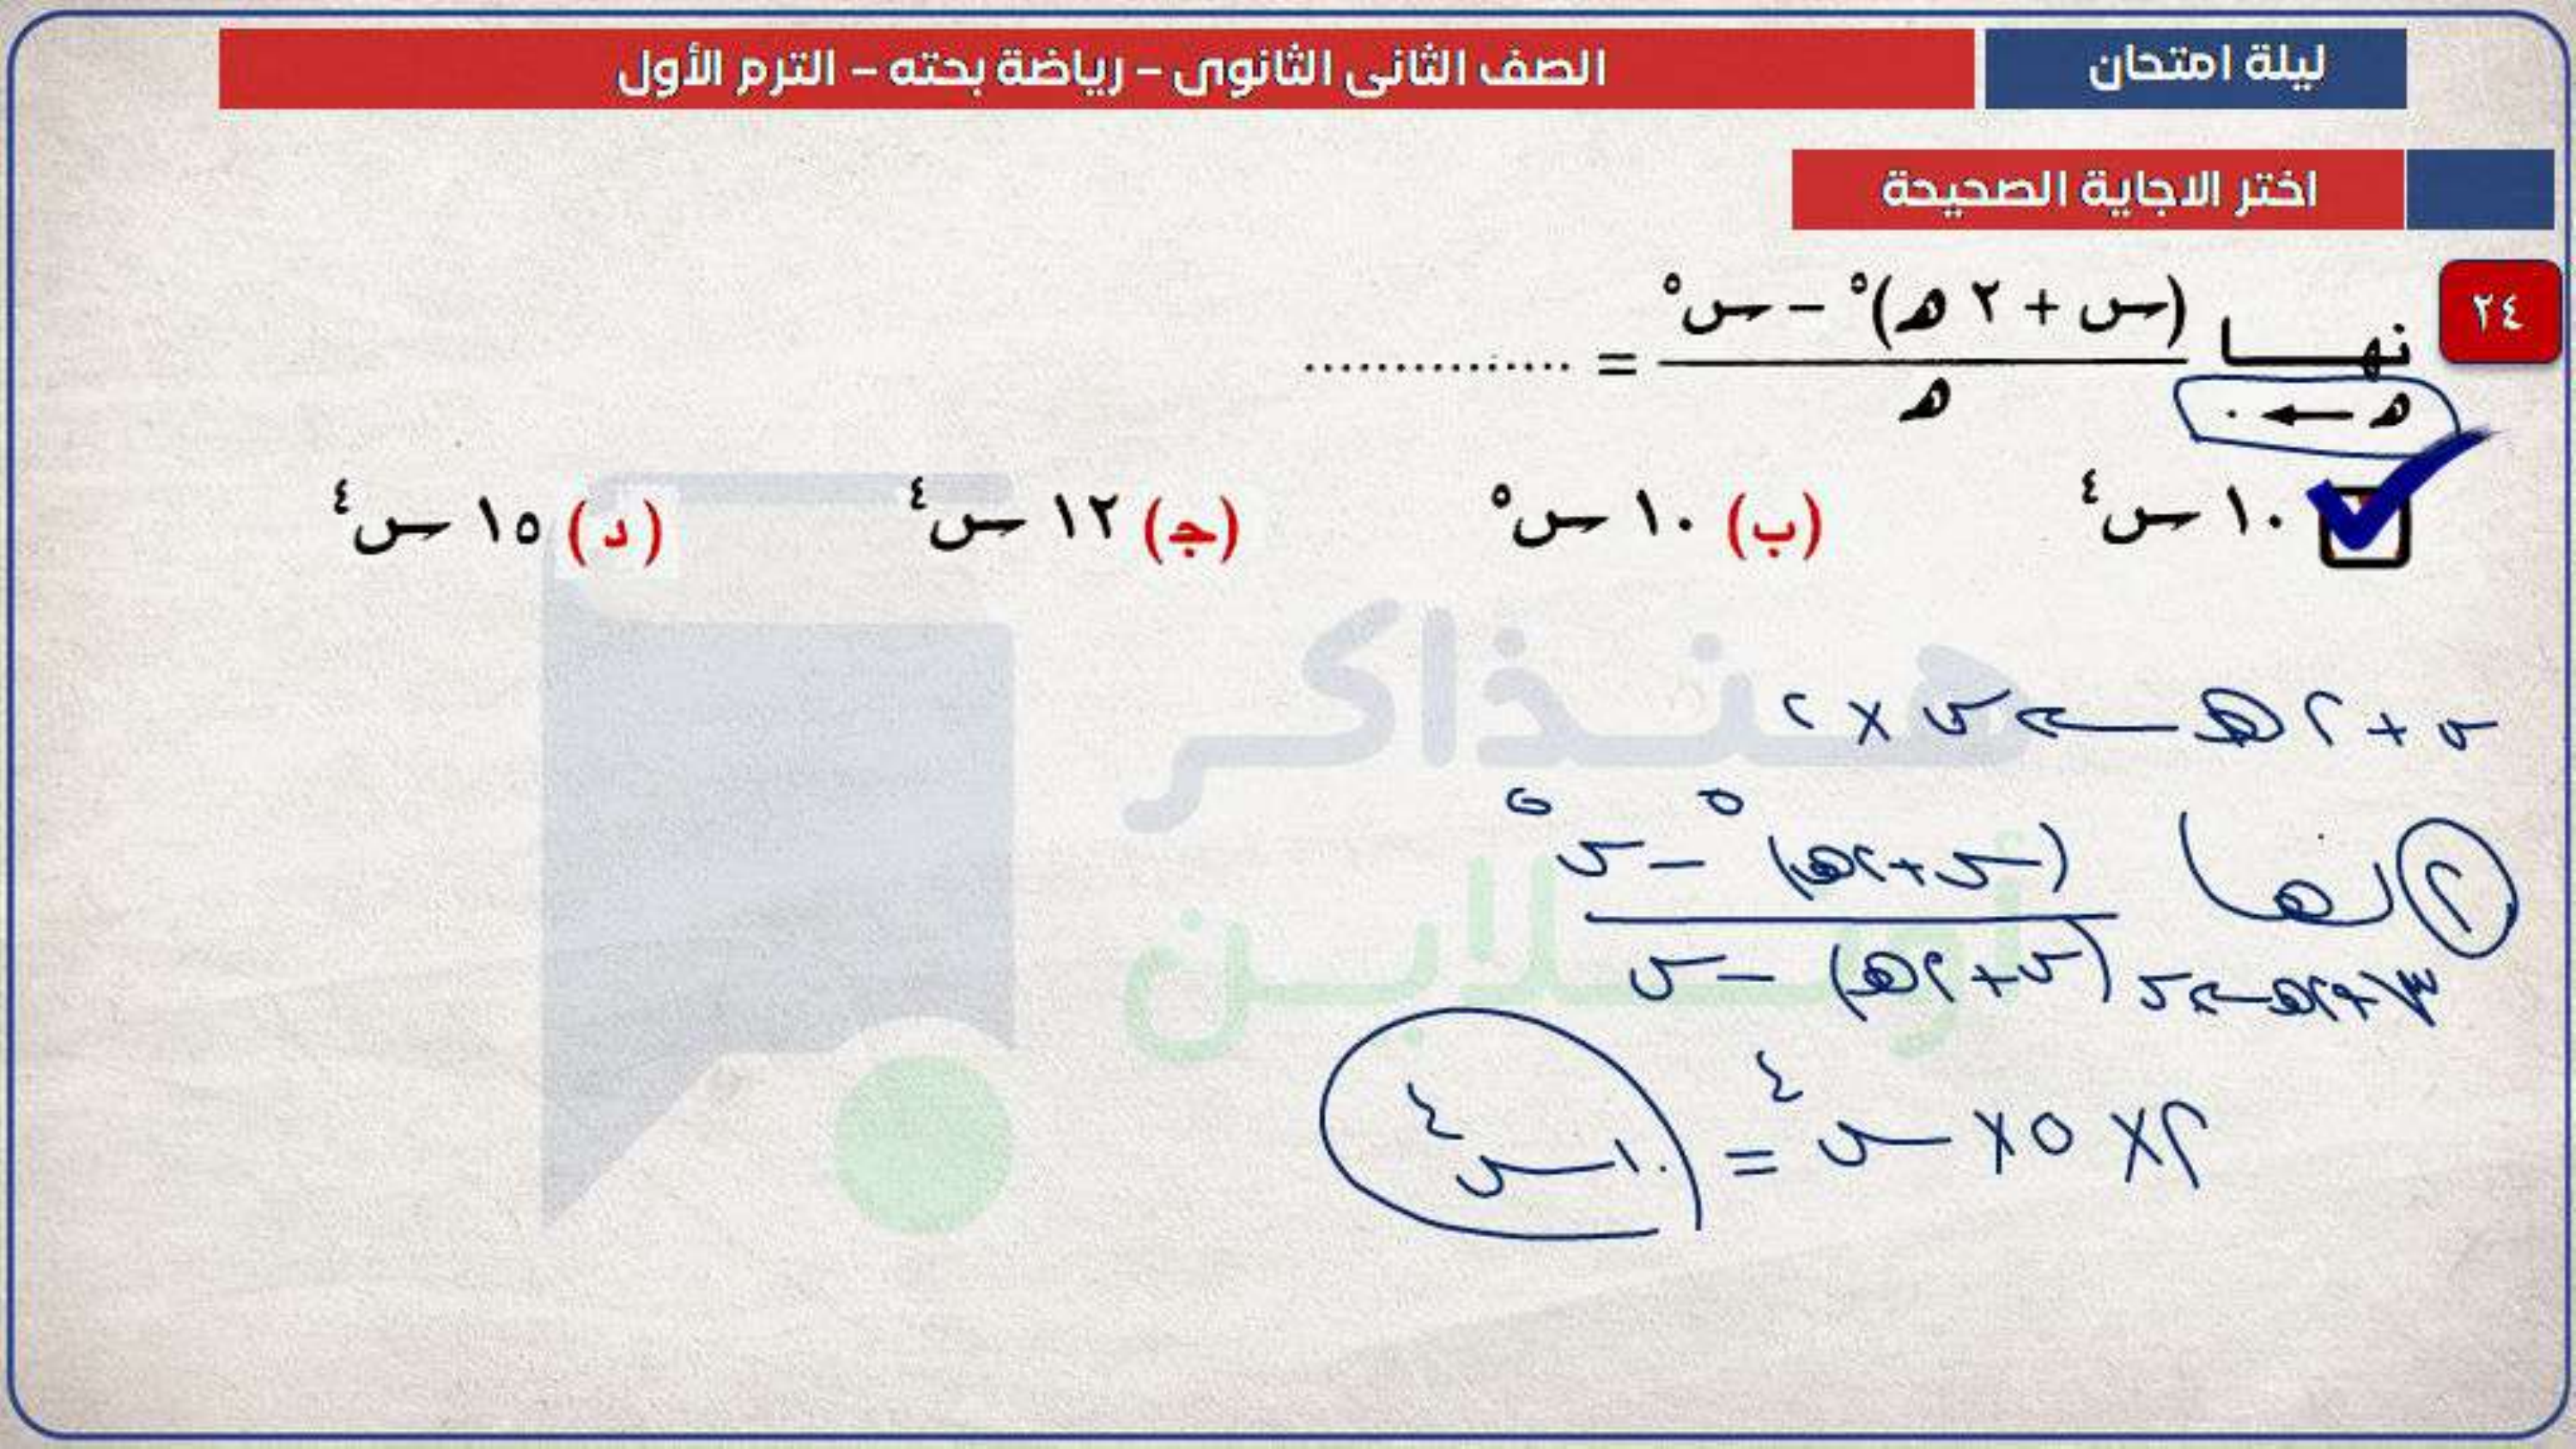 ليلة امتحان
الصف الثانى الثانوى – رياضة بحته – الترم الأول
اختر الاجاية الصحيحة
٢٤ نهـــا (س + ٢ هـ)^٥ – س^٥ / هـ = ...............
هـ ← ٠
١٠ س^٤ (ب) ١٠ س^٥ (جـ) ١٢ س^٤ (د) ١٥ س^٤
هنذاكر
أونلاين
س + ٢ هـ ← س × ٢
٢ نهـا (س + ٢هـ)^٥ – س^٥
س + ٢هـ ← س (س + ٢هـ) – س
٢ × ٥ × س^٤ = ١٠ س^٤